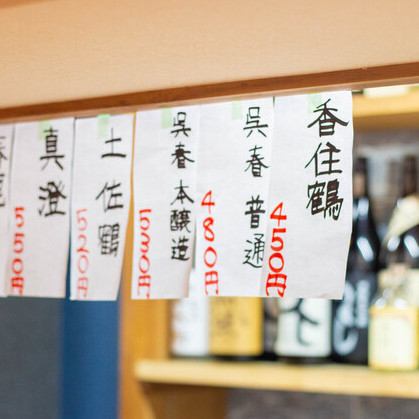 香住鶴
450円
呉春普通
480円
呉春本醸造
530円
土佐鶴
520円
真澄
550円